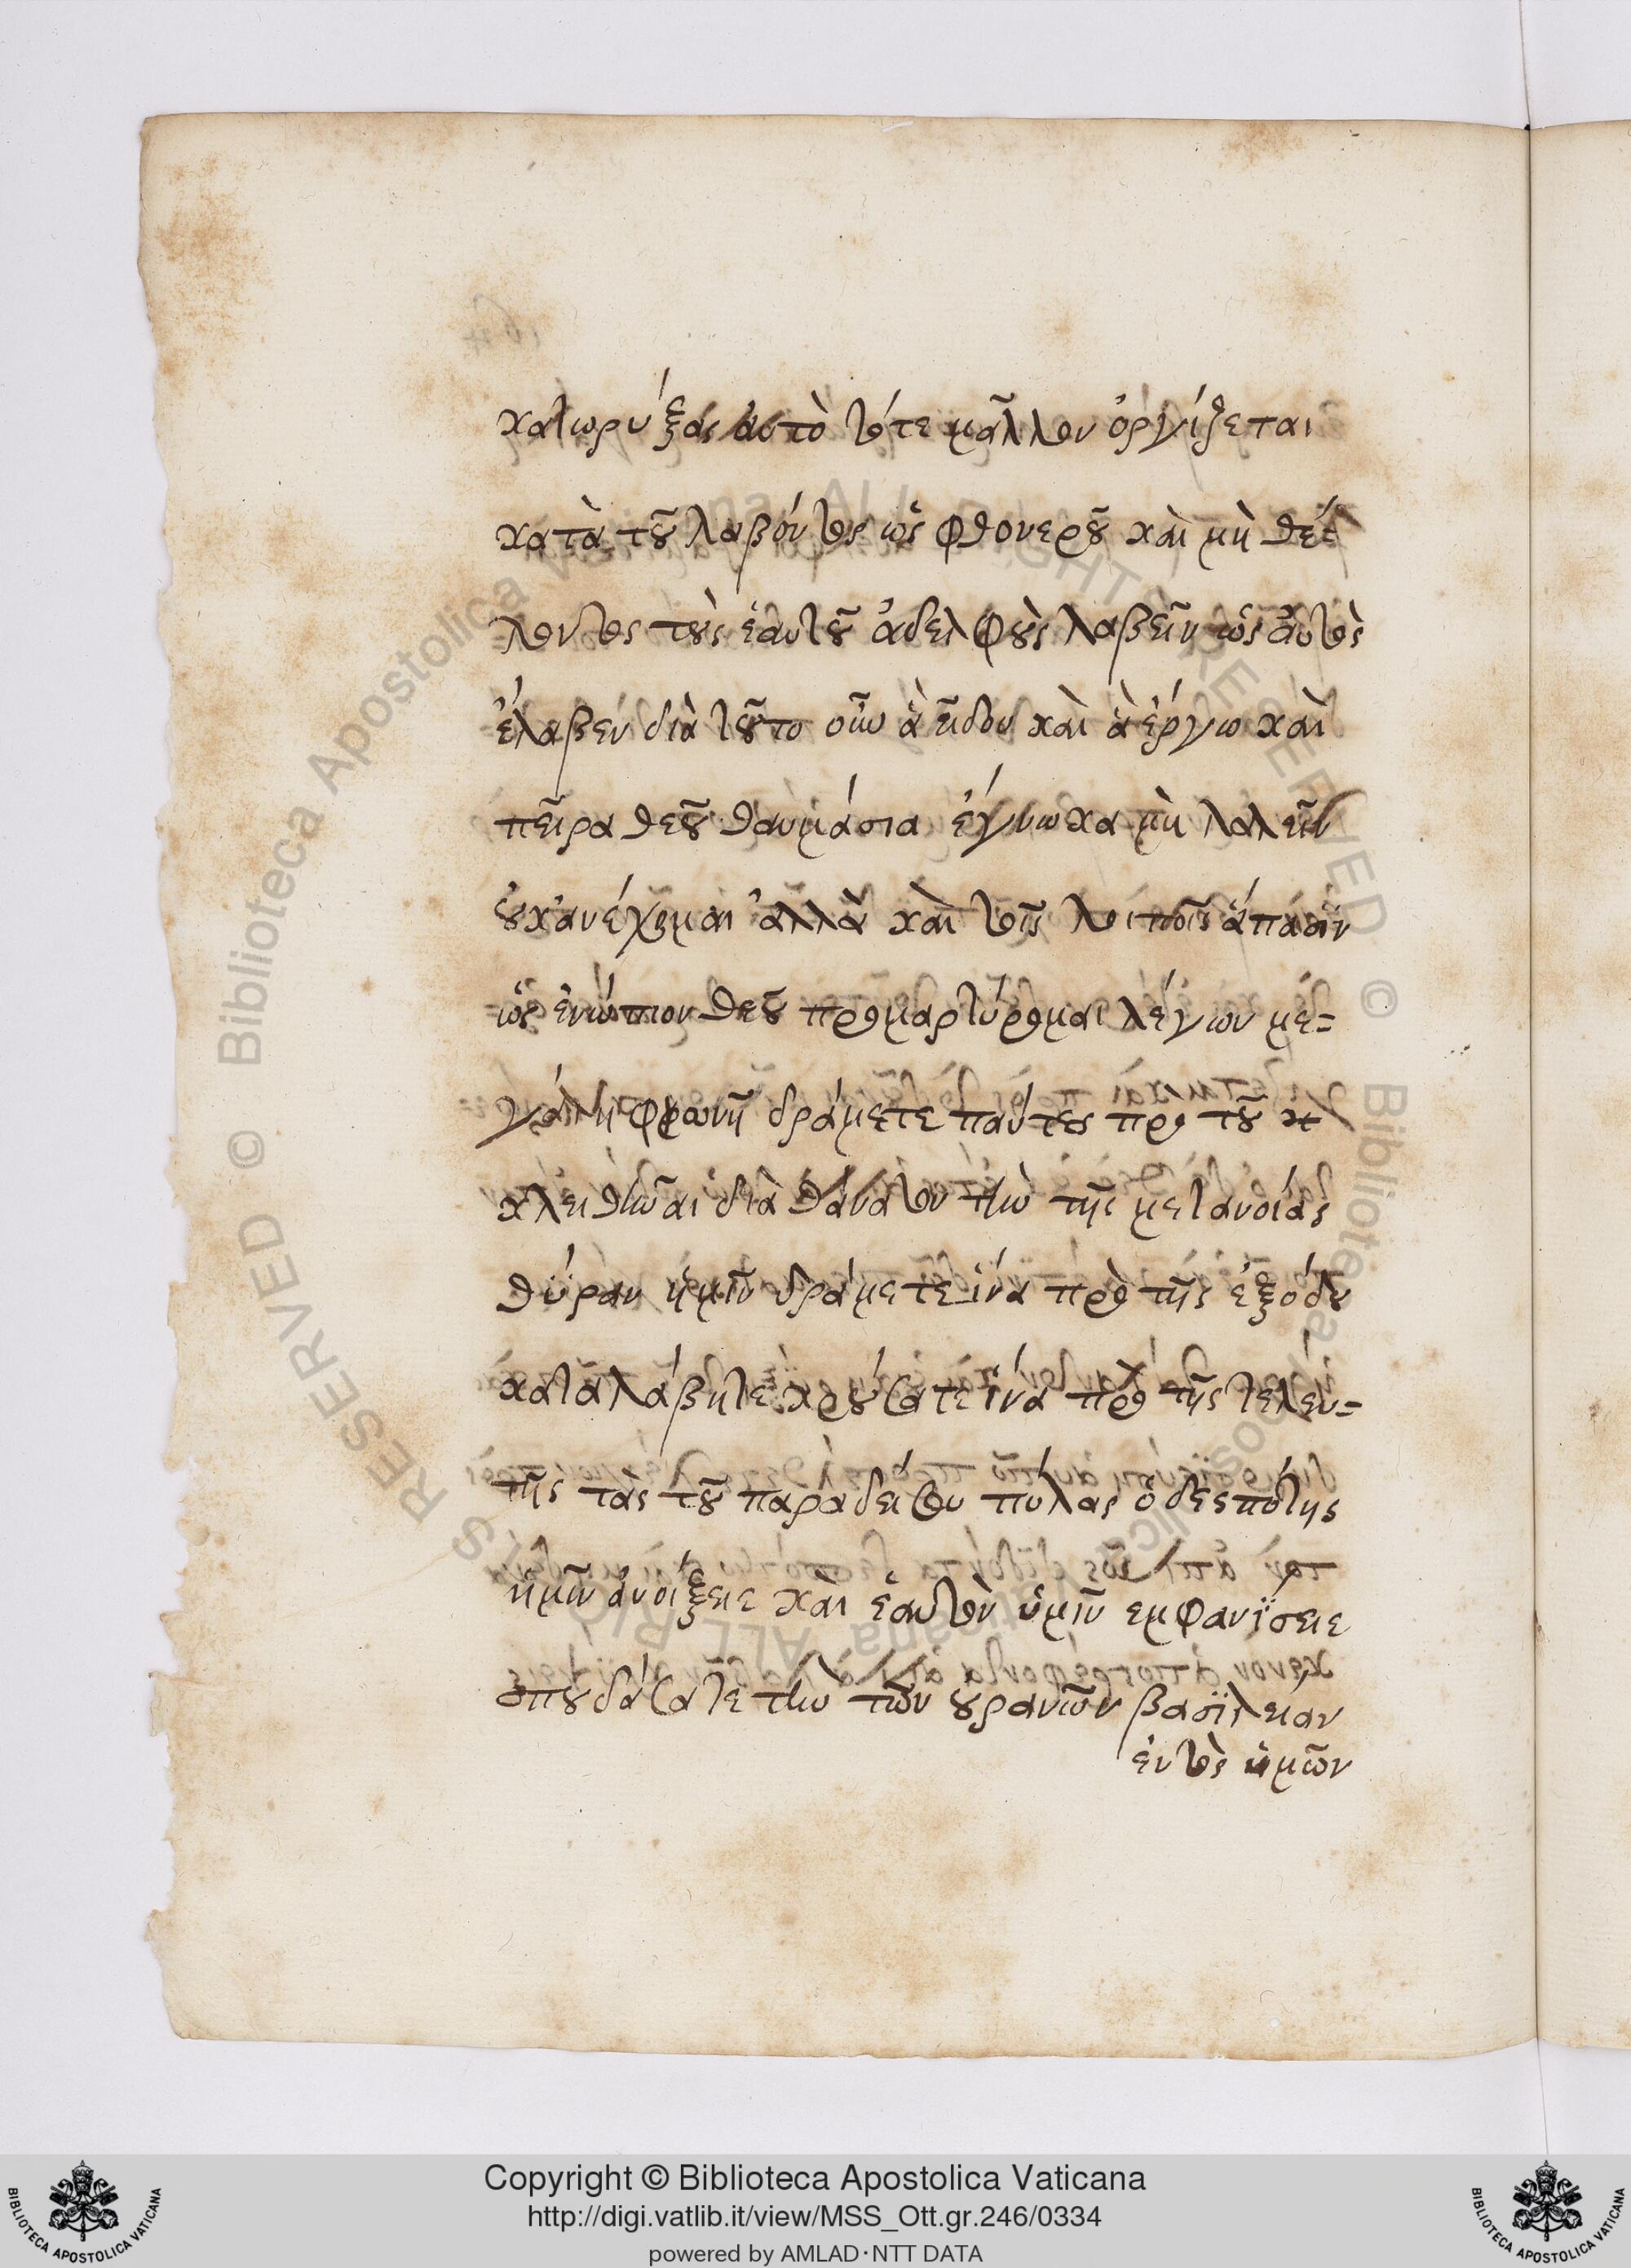 κατωρύξας αυτὸ τότε μᾶλλον ὀργίζεται
κατὰ τοῦ λαβόντος ὡς φθονεροῦ καὶ μὴ θέ=
λοντος τοὺς ἑαυτοῦ ἀδελφοὺς λαβεῖν ὡς ἀυτὸς
ἔλαβεν διὰ τοῦτο οὖν ἃ εἶδον καὶ ἃ ἔργω καὶ
πεῖρα θεοῦ θαυμάσια ἔγνωκα μὴ λαλεῖν
οὐκ ἀνέχομαι ἀλλὰ καὶ τοῖς λοιποῖς ἅπασιν
ὡς ἐνώπιον θεοῦ προμαρτύρομαι λέγων με=
γάλη φρωνῆ δράμετε πάντες πρὸ τοῦ
κλειθῆναι διὰ θανάτου τὴν τῆς μετανοίας
θύραν ἡμῖν δράμετε ἵνα πρὸ τῆς ἐξόδου
καταλάβητε κρούσατε ἵνα πρὸ τῆς τελευ=
τῆς τὰς τοῦ παραδείσου πύλας ὁ δεσπότης
ἡμῶν ἀνοίξεις καὶ ἑαυτὸν ὑμῖν εμφανΐσεις
σπουδάσατε τὴν τῶν οὐρανῶν βασϊλείαν
ἐντὸς ὑμῶν
Copyright © Biblioteca Apostolica Vaticana
http://digi.vatlib.it/view/MSS_Ott.gr.246/0334
powered by AMLAD·NTT DATA
BIBLIOTECA APOSTOLICA VATICANA
BIBLIOTECA APOSTOLICA VATICANA